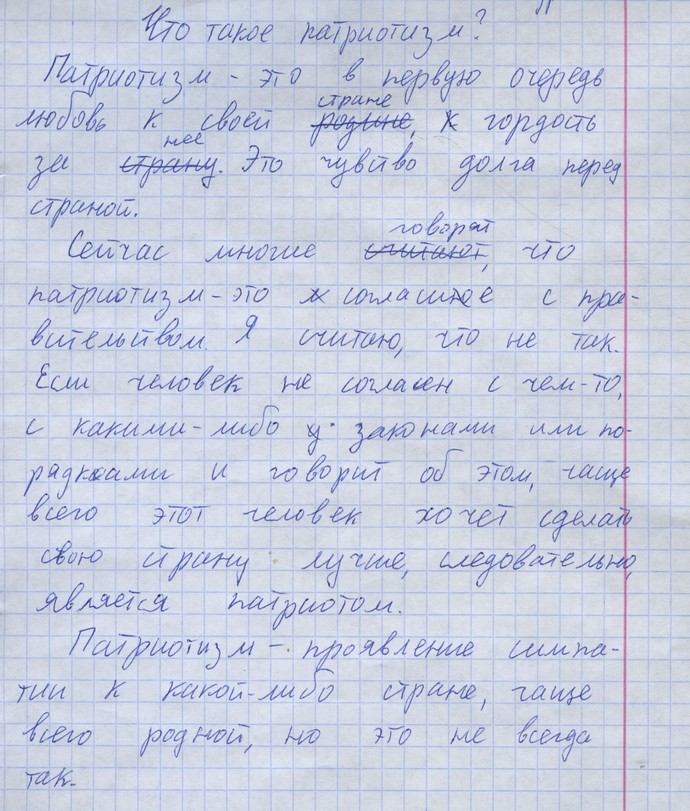 Что такое патриотизм?
Патриотизм - это в первую очередь
любовь к своей родине, стране гордость
за страну. нее Это чувство долга перед
страной.
Сейчас многие считают, говорят что
патриотизм - это согласие с пра-
вительством. Я считаю, что не так.
Если человек не согласен с чем-то,
с какими-либо законами или по-
рядками и говорит об этом, чаще
всего этот человек хочет сделать
свою страну лучше, следовательно,
является патриотом.
Патриотизм - проявление симпа-
тии к какой-либо стране, чаще
всего родной, но это не всегда
так.